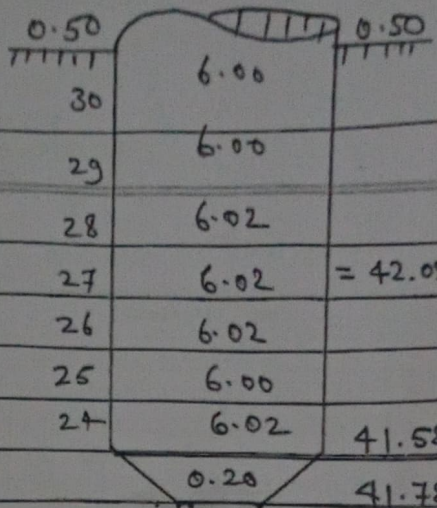 0.50 0.50
6.00
30
6.00
29
28 6.02
27 6.02 = 42.0
26 6.02
25 6.00
24 6.02 41.58
0.20 41.78